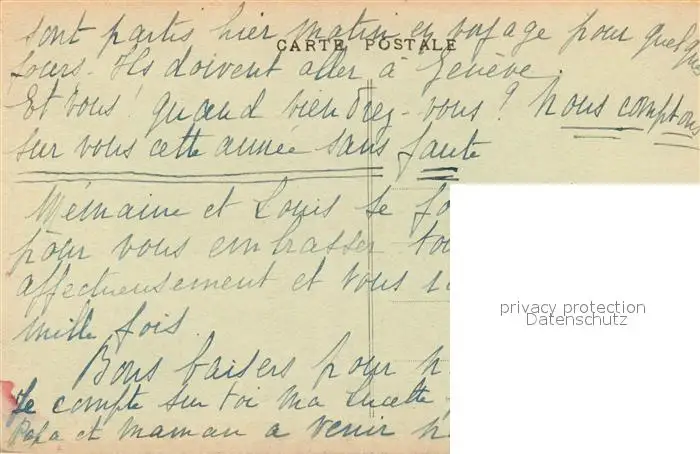 sont partis hier matin en voyage pour quelques
CARTE POSTALE
jours. Ils doivent aller à Genève.
Et vous! quand viendrez-vous? Nous comptons
sur vous cette année sans faute
Mémaine et Louis se
pour vous embrasser
affectueusement et vous
mille fois.
privacy protection
Datenschutz
Bons baisers pour
Je compte sur toi ma Lucette
Papa et maman a venir